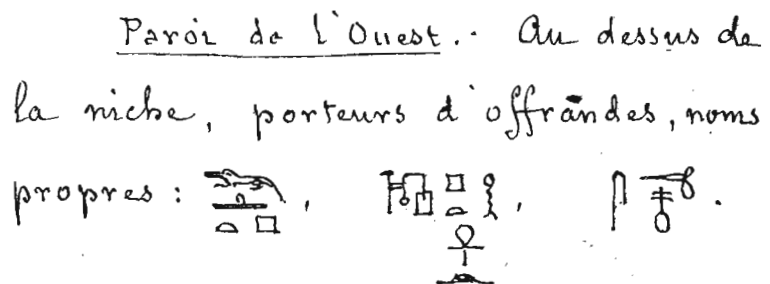 Paroi de l'Ouest.- Au dessus de
la niche, porteurs d'offrandes, noms
propres : , , .